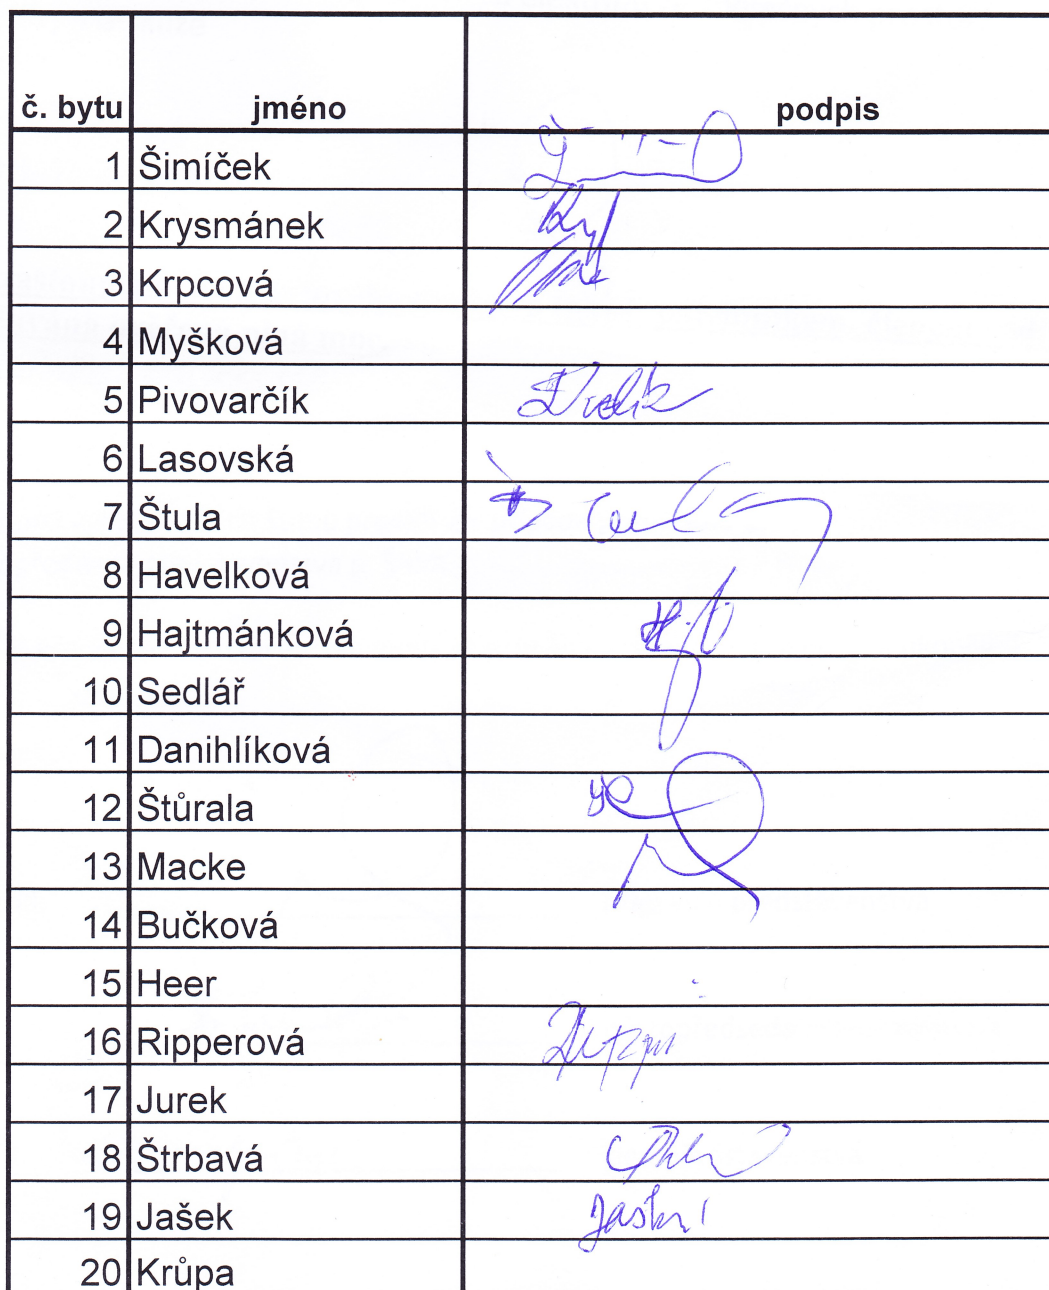 č. bytu jméno podpis
1 Šimíček
2 Krysmánek
3 Krpcová
4 Myšková
5 Pivovarčík
6 Lasovská
7 Štula
8 Havelková
9 Hajtmánková
10 Sedlář
11 Danihlíková
12 Štůrala
13 Macke
14 Bučková
15 Heer
16 Ripperová
17 Jurek
18 Štrbavá
19 Jašek
20 Krůpa